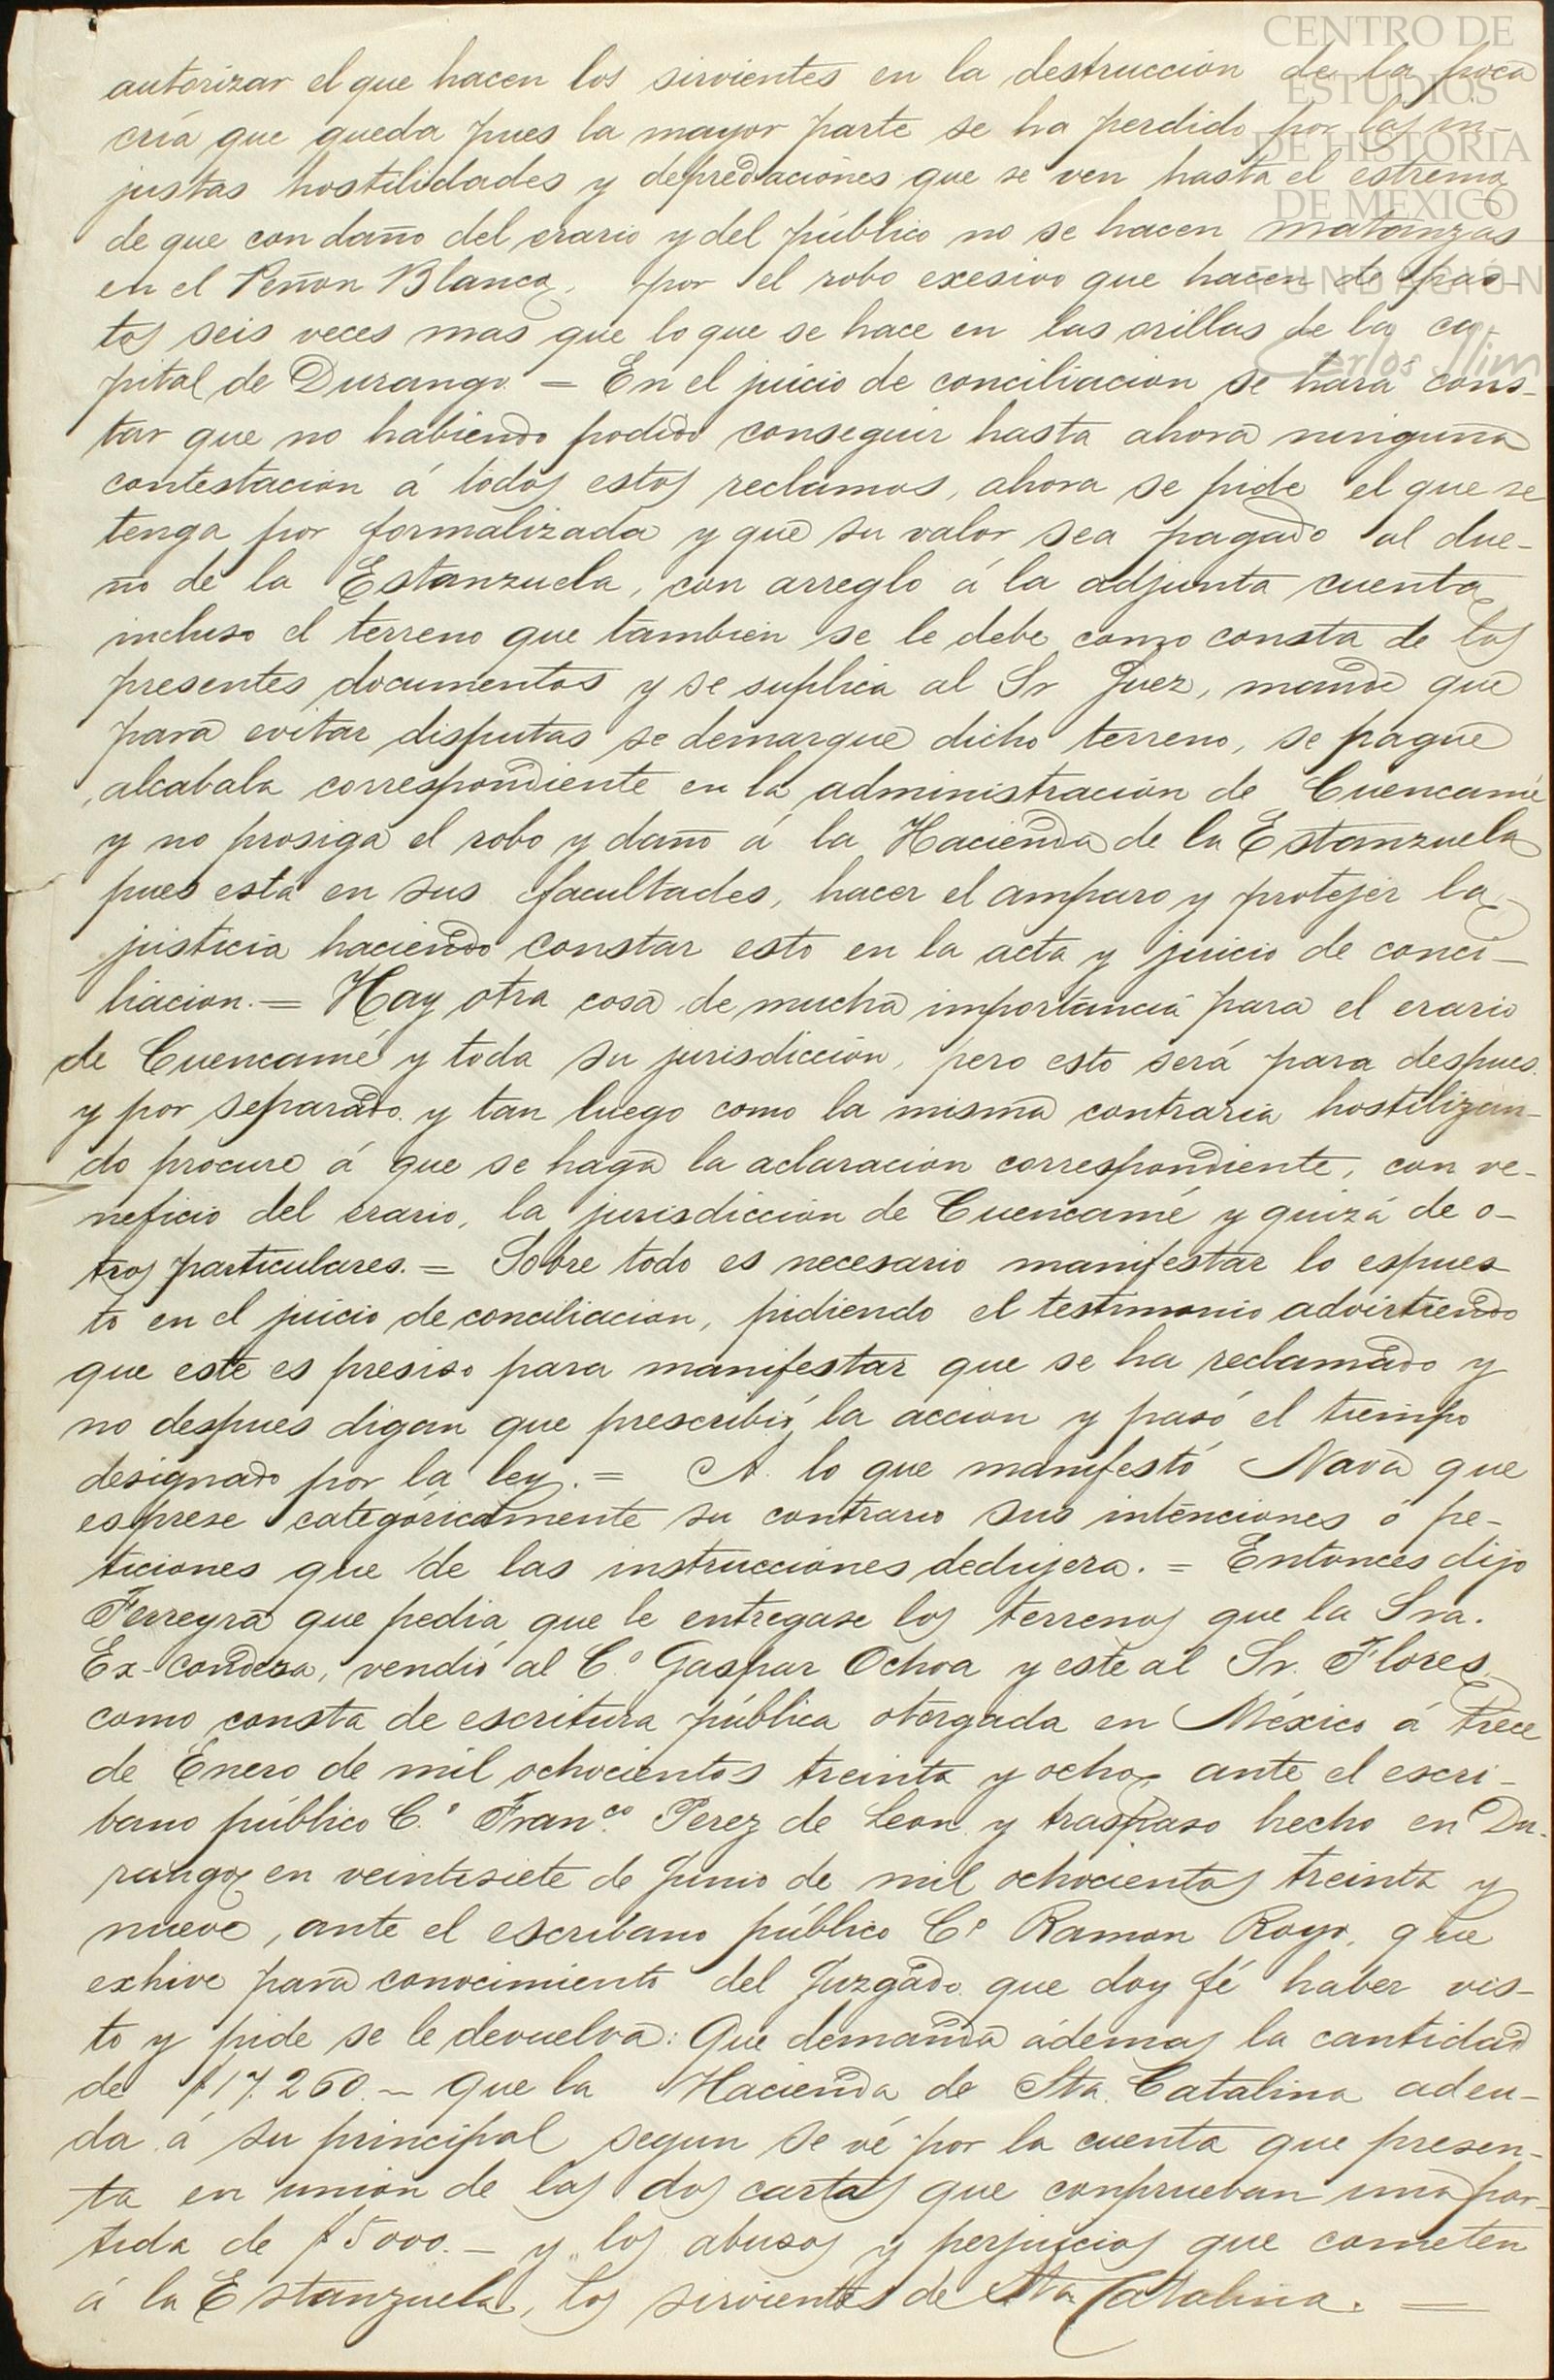 CENTRO DE
ESTUDIOS
DE HISTORIA
DE MEXICO
FUNDACIÓN
Carlos Slim
autorizar el que hacen los sirvientes en la destruccion de la poca
cría que queda pues la mayor parte se ha perdido por las in-
justas hostilidades y depredaciones que se ven hasta el estremo
de que con daño del erario y del público no se hacen matanzas
en el Peñon Blanco, por el robo exesivo que hacen de pas-
tos seis veces mas que lo que se hace en las orillas de la ca-
pital de Durango. = En el juicio de conciliacion se hará cons-
tar que no habiendo podido conseguir hasta ahora ninguna
contestacion á todos estos reclamos, ahora se pide el que se
tenga por formalizada y que su valor sea pagado al due-
ño de la Estanzuela, con arreglo á la adjunta cuenta
incluso el terreno que tambien se le debe como consta de los
presentes documentos y se suplica al Sr Juez, mande que
para evitar disputas se demarque dicho terreno, se pague
alcabala correspondiente en la administracion de Cuencamé
y no prosiga el robo y daño á la Hacienda de la Estanzuela
pues está en sus facultades, hacer el amparo y protejer la
justicia haciendo constar esto en la acta y juicio de conci-
liacion. = Hay otra cosa de mucha importancia para el erario
de Cuencamé y toda su jurisdiccion, pero esto será para despues
y por separado y tan luego como la misma contraria hostilizan-
do procure á que se haga la aclaracion correspondiente, con ve-
neficio del erario, la jurisdiccion de Cuencamé y quizá de o-
tros particulares. = Sobre todo es necesario manifestar lo espues
to en el juicio de conciliacion, pidiendo el testimonio advirtiendo
que este es presiso para manifestar que se ha reclamado y
no despues digan que prescribió la accion y pasó el tiempo
designado por la ley. = A lo que manifestó Nava que
esprese categóricamente su contrario sus intenciones ó pe-
ticiones que de las instrucciones dedujera. = Entonces dijo
Ferreyra que pedia que le entregase los terrenos que la Sra.
Ex-condesa, vendió al C.º Gaspar Ochoa y este al Sr. Flores
como consta de escritura pública otorgada en México á trece
de Enero de mil ochocientos treinta y ocho ante el escri-
bano público C.º Fran.co Perez de Leon y traspaso hecho en Du-
rango en veintisiete de Junio de mil ochocientos treinta y
nueve, ante el escribano público C.º Ramon Royo, que
exhive para conocimiento del Juzgado que doy fé haber vis-
to y pide se le devuelva: Que demanda ádemas la cantidad
de $17,260. - Que la Hacienda de Sta. Catalina adeu-
da á su principal segun se vé por la cuenta que presen-
ta en union de las dos cartas que conprueban una par-
tida de $5000. - y los abusos y perjuicios que cometen
á la Estanzuela, los sirvientes de Sta Catalina. =